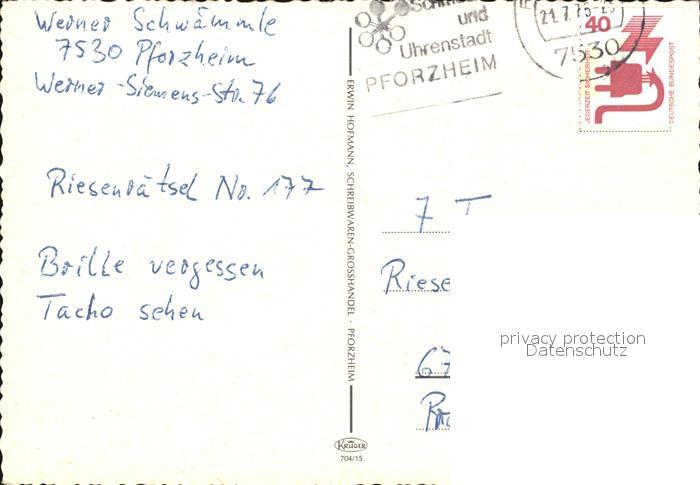 Werner Schwämmle
7530 Pforzheim
Werner-Siemens-Str. 76
Riesenrätsel No. 177
Brille vergessen
Tacho sehen
ERWIN HOFMANN, SCHREIBWAREN-GROSSHANDEL · PFORZHEIM
KRÜGER
704/15
und
Uhrenstadt
PFORZHEIM
21.7.75
7530
40
JEDERZEIT SICHERHEIT
DEUTSCHE BUNDESPOST
7 T
Riese
67
privacy protection
Datenschutz